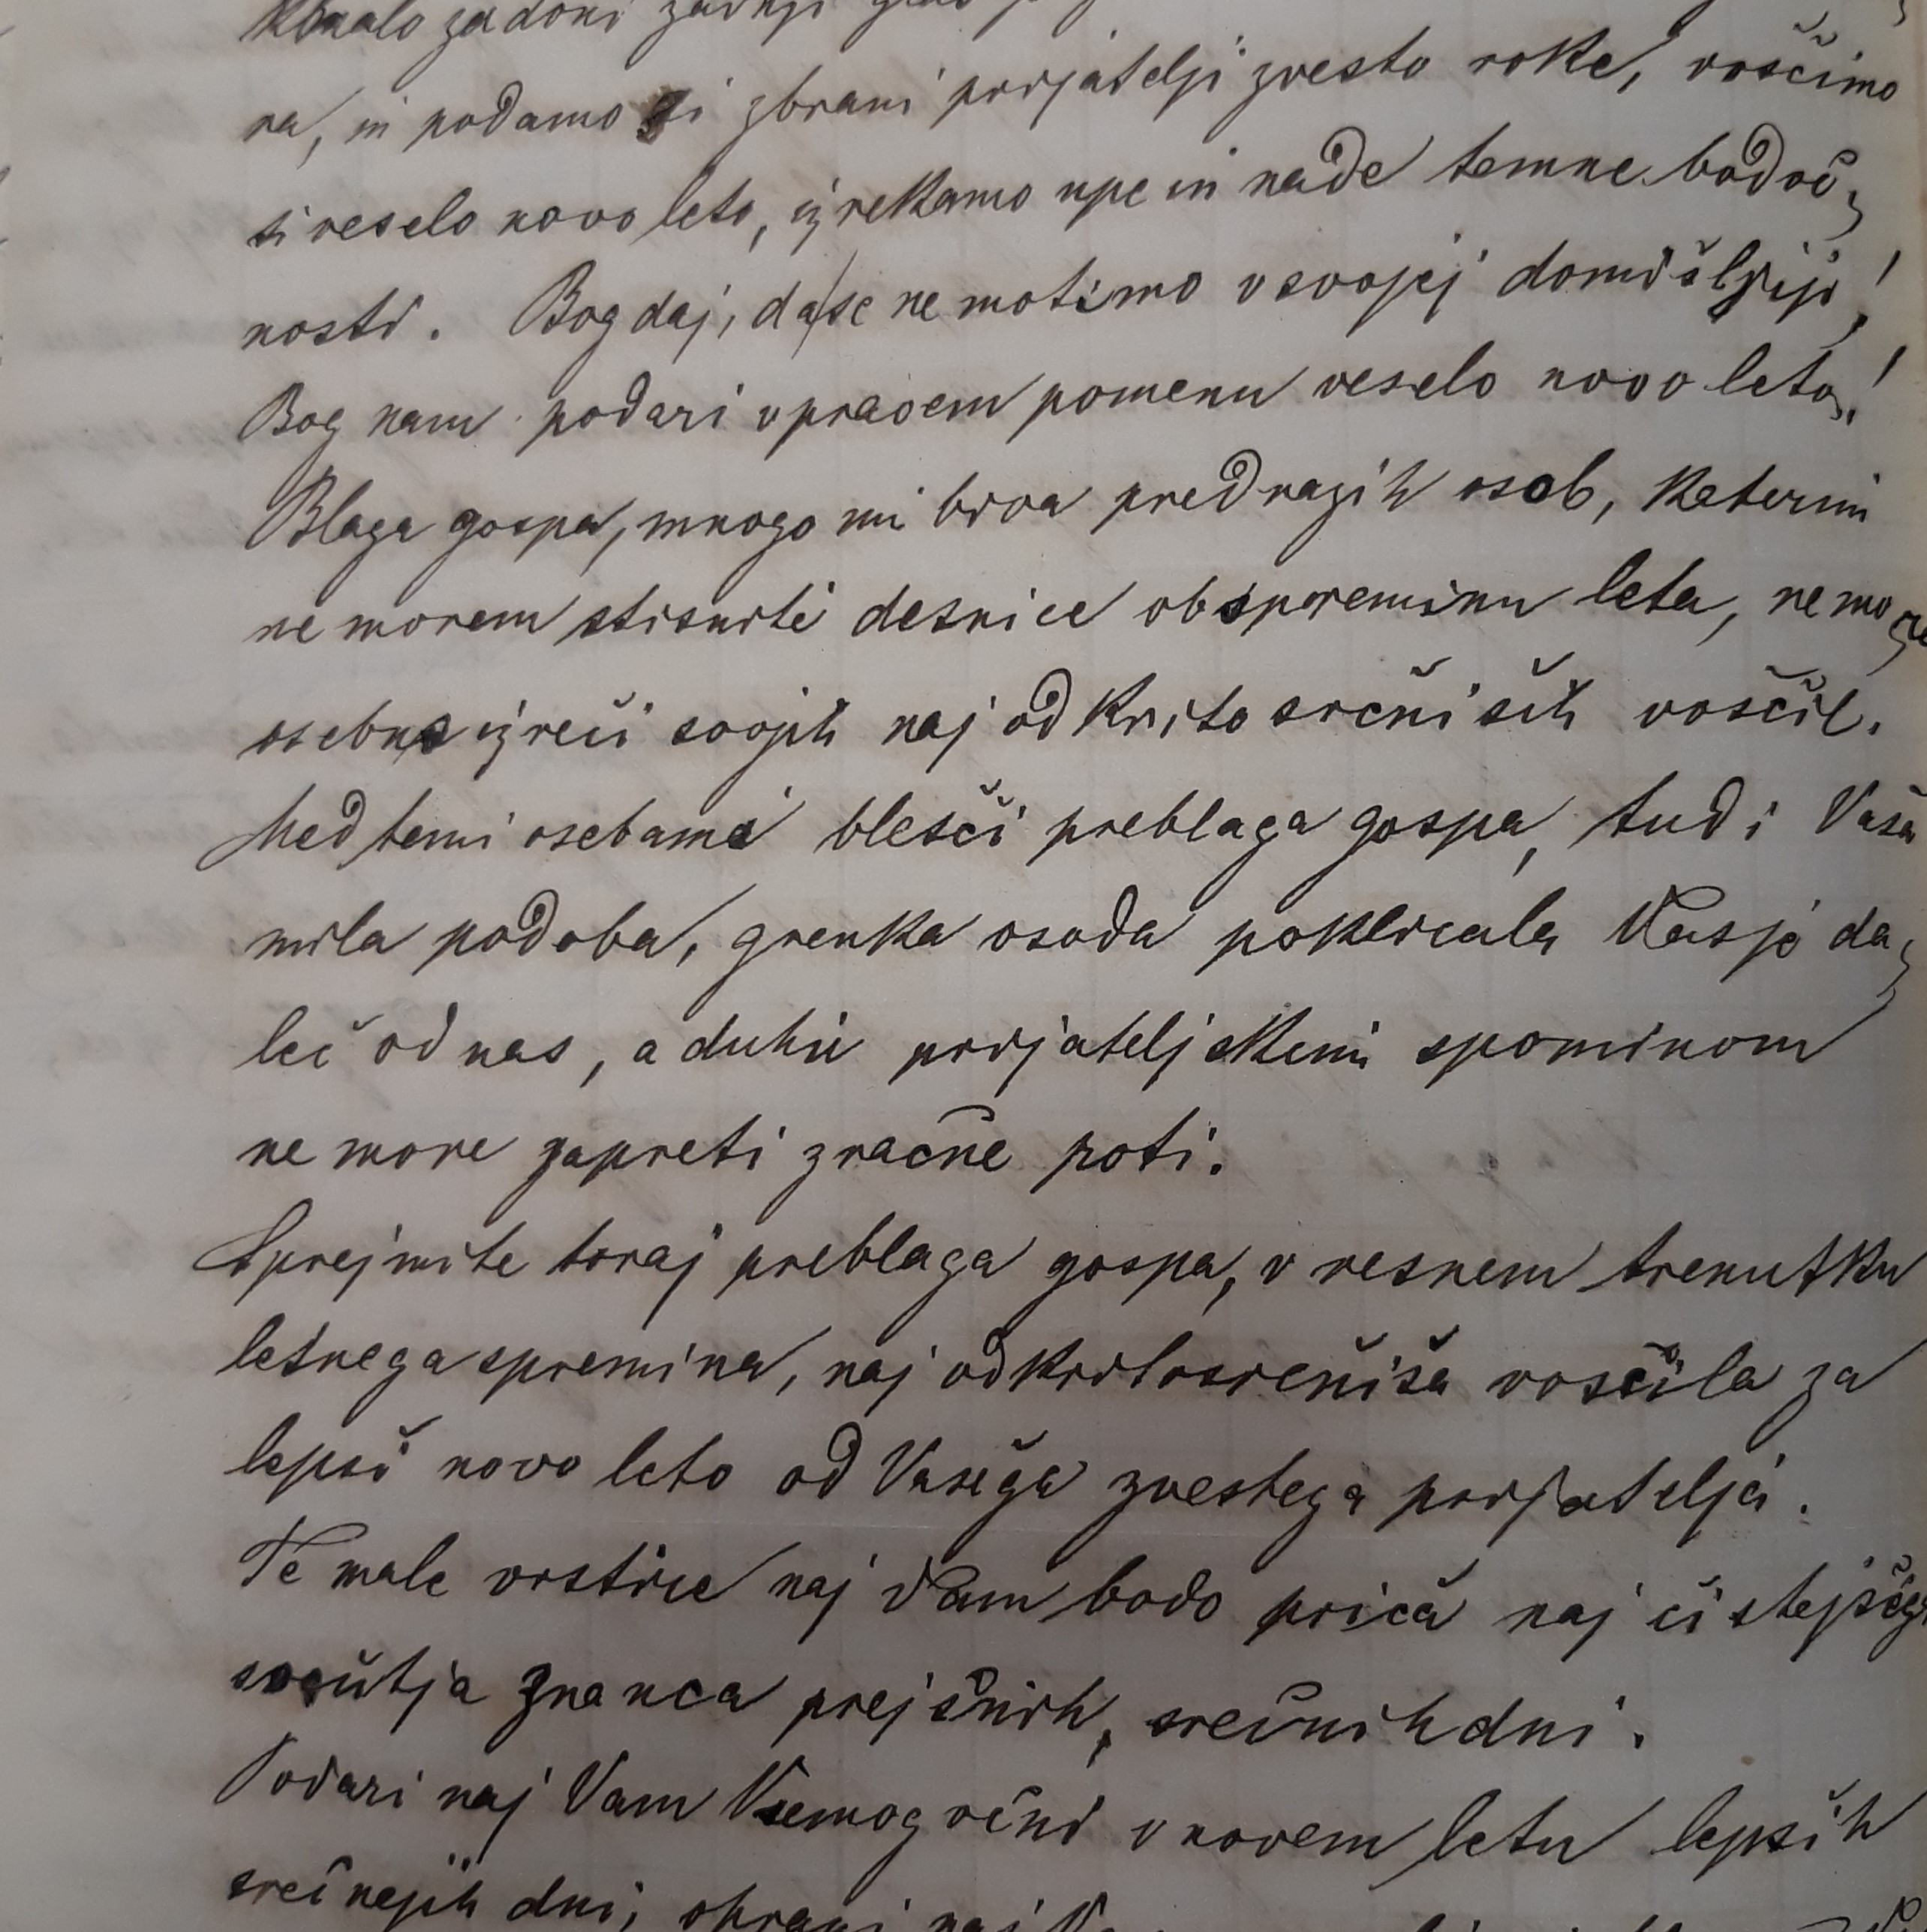 kmalo zadoni zadnji glas
ra, in podamo si zbrani prijatelji zvesto roke, voščimo
si veselo novo leto, izrekamo upe in nade temne bodoč-
nosti. Bog daj, da se ne motimo v svojej domišljiji!
Bog nam podari v pravem pomenu veselo novo leto!
Blaga gospa, mnogo mi biva predragih osob, katerim
ne morem stisniti desnice ob spreminu leta, ne mo-
osebno izreči svojih najodkritosrčniših voščil.
Med temi osebami blešči preblaga gospa, tudi Vaša
mila podoba, grenka osoda poklicala Vas je da-
leč od nas, a duhu prijateljskemu spominom
ne more zapreti zračne poti.
Sprejmite toraj preblaga gospa, v resnem trenutku
letnega spremina, najodkritosrčniša voščila za
lepši novo leto od Vašega zvestega prijatelja.
Te male vrstice naj Vam bodo priča najčistejšega
sočutja znanca prejšnih, srečnih dni.
Podari naj Vam Vsemogočni v novem letu lepših
srečnejih dni, ohrani naj